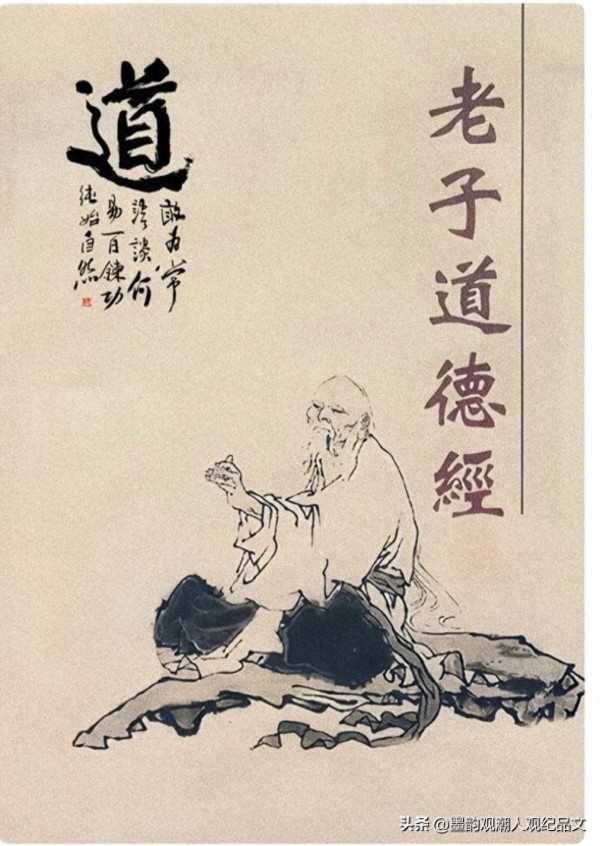 老子道德經
道
敢为常
语談何
易百鍊功
纯始自然
头条 @墨韵观潮人观纪品文